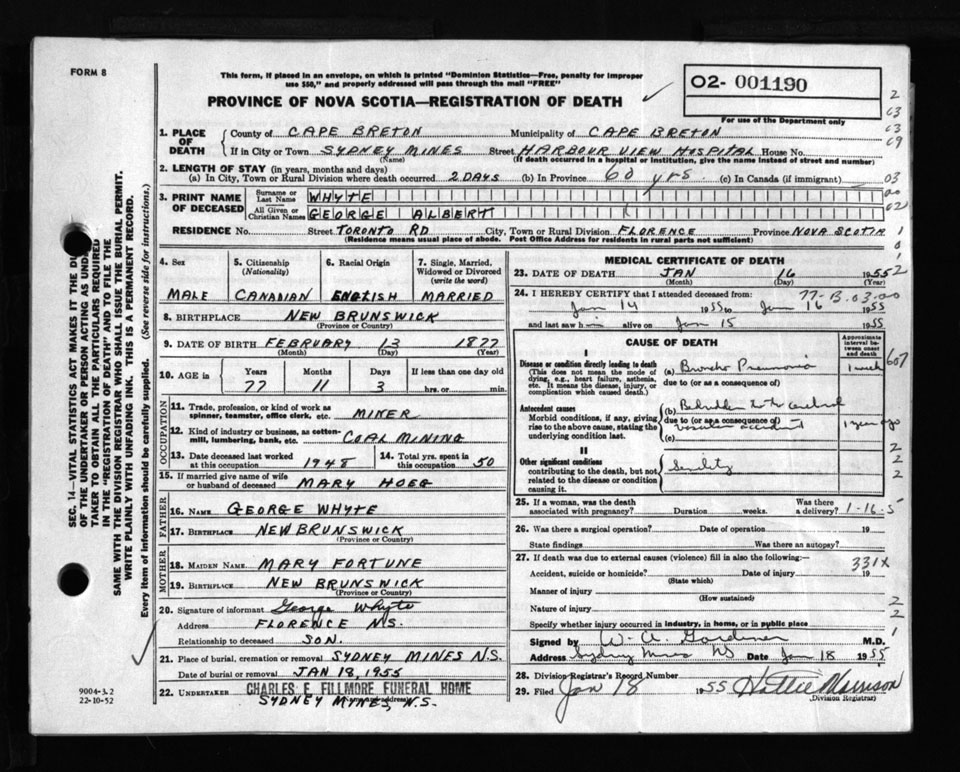 FORM 8
This form, if placed in an envelope, on which is printed "Dominion Statistics—Free, penalty for improper
use $50," and properly addressed will pass through the mail "FREE"
PROVINCE OF NOVA SCOTIA—REGISTRATION OF DEATH
02- 001190
For use of the Department only
1. PLACE OF DEATH
County of CAPE BRETON Municipality of CAPE BRETON
If in City or Town SYDNEY MINES Street HARBOUR VIEW HOSPITAL House No.
(Name) (If death occurred in a hospital or institution, give the name instead of street and number)
2. LENGTH OF STAY (in years, months and days)
(a) In City, Town or Rural Division where death occurred 2 DAYS (b) In Province 60 yrs. (c) In Canada (if immigrant)
3. PRINT NAME OF DECEASED
Surname or Last Name WHYTE
All Given or Christian Names GEORGE ALBERT
RESIDENCE No. Street TORONTO RD City, Town or Rural Division FLORENCE Province NOVA SCOTIA
(Residence means usual place of abode. Post Office Address for residents in rural parts not sufficient)
4. Sex
MALE
5. Citizenship
(Nationality)
CANADIAN
6. Racial Origin
ENGLISH
7. Single, Married,
Widowed or Divorced
(write the word)
MARRIED
8. BIRTHPLACE NEW BRUNSWICK
(Province or Country)
9. DATE OF BIRTH FEBRUARY 13 1877
(Month) (Day) (Year)
10. AGE in
Years Months Days If less than one day old
77 11 3 hrs. or min.
OCCUPATION
11. Trade, profession, or kind of work as
spinner, teamster, office clerk, etc. MINER
12. Kind of industry or business, as cotton-
mill, lumbering, bank, etc. COAL MINING
13. Date deceased last worked
at this occupation 1948
14. Total yrs. spent in
this occupation 50
15. If married give name of wife
or husband of deceased MARY HOEG
FATHER
16. NAME GEORGE WHYTE
17. BIRTHPLACE NEW BRUNSWICK
(Province or Country)
MOTHER
18. MAIDEN NAME MARY FORTUNE
19. BIRTHPLACE NEW BRUNSWICK
(Province or Country)
20. Signature of informant George Whyte
Address FLORENCE N.S.
Relationship to deceased SON.
21. Place of burial, cremation or removal SYDNEY MINES N.S.
Date of burial or removal JAN 18, 1955
22. UNDERTAKER CHARLES E FILLMORE FUNERAL HOME
SYDNEY MINES, N.S.
9004-3.2
22-10-52
MEDICAL CERTIFICATE OF DEATH
23. DATE OF DEATH JAN 16 1955
(Month) (Day) (Year)
24. I HEREBY CERTIFY that I attended deceased from:
Jan 14 1955 to Jan 16 1955
and last saw him alive on Jan 15 1955
CAUSE OF DEATH
Approximate interval between onset and death
I
Disease or condition directly leading to death
(This does not mean the mode of
dying, e.g., heart failure, asthenia,
etc. It means the disease, injury, or
complication which caused death.)
(a) Broncho Pneumonia 1 week
due to (or as a consequence of)
Antecedent causes
Morbid conditions, if any, giving
rise to the above cause, stating the
underlying condition last.
(b) cerebral
due to (or as a consequence of)
vascular accident 1 year ago
(c)
II
Other significant conditions
contributing to the death, but not
related to the disease or condition
causing it.
Senility
25. If a woman, was the death
associated with pregnancy? Duration weeks. Was there
a delivery?
1-16-5
26. Was there a surgical operation? Date of operation 19
State findings Was there an autopsy?
27. If death was due to external causes (violence) fill in also the following:—
331X
Accident, suicide or homicide? Date of injury 19
(State which)
Manner of injury
(How sustained)
Nature of injury
Specify whether injury occurred in industry, in home, or in public place
Signed by W. A. Gardiner M.D.
Address Sydney Mines NS Date Jan 18 1955
28. Division Registrar's Record Number
29. Filed Jan 18 1955 Hattie Morrison
(Division Registrar)
SEC. 14—VITAL STATISTICS ACT MAKES IT THE DU
OF THE UNDERTAKER OR PERSON ACTING AS UNDE
TAKER TO OBTAIN ALL THE PARTICULARS REQUIRED
IN THE "REGISTRATION OF DEATH" AND TO FILE THE
SAME WITH THE DIVISION REGISTRAR WHO SHALL ISSUE THE BURIAL PERMIT.
WRITE PLAINLY WITH UNFADING INK. THIS IS A PERMANENT RECORD.
Every item of information should be carefully supplied. (See reverse side for instructions.)